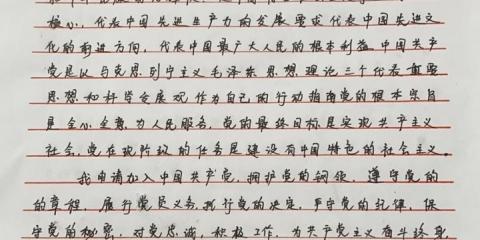 核心,代表中国先进生产力的发展要求代表中国先进文
化的前进方向,代表中国最广大人民的根本利益中国共产
党是以马克思列宁主义毛泽东思想理论三个代表重要
思想和科学发展观作为自己的行动指南党的根本宗旨
是全心全意为人民服务,党的最终目标是实现共产主义
社会,党在现阶段的任务是建设有中国特色的社会主义.
我申请加入中国共产党,拥护党的纲领,遵守党的
的章程,履行党员义务,执行党的决定,严守党的纪律,保
守党的秘密,对党忠诚,积极工作,为共产主义奋斗终身